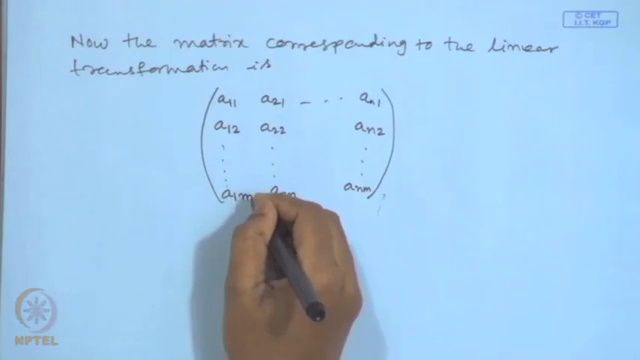 © CET
I.I.T. KGP
Now the matrix corresponding to the linear
transformation is
a11 a21 - . . . an1
a12 a22 an2
. . .
. . .
a1m anm
NPTEL